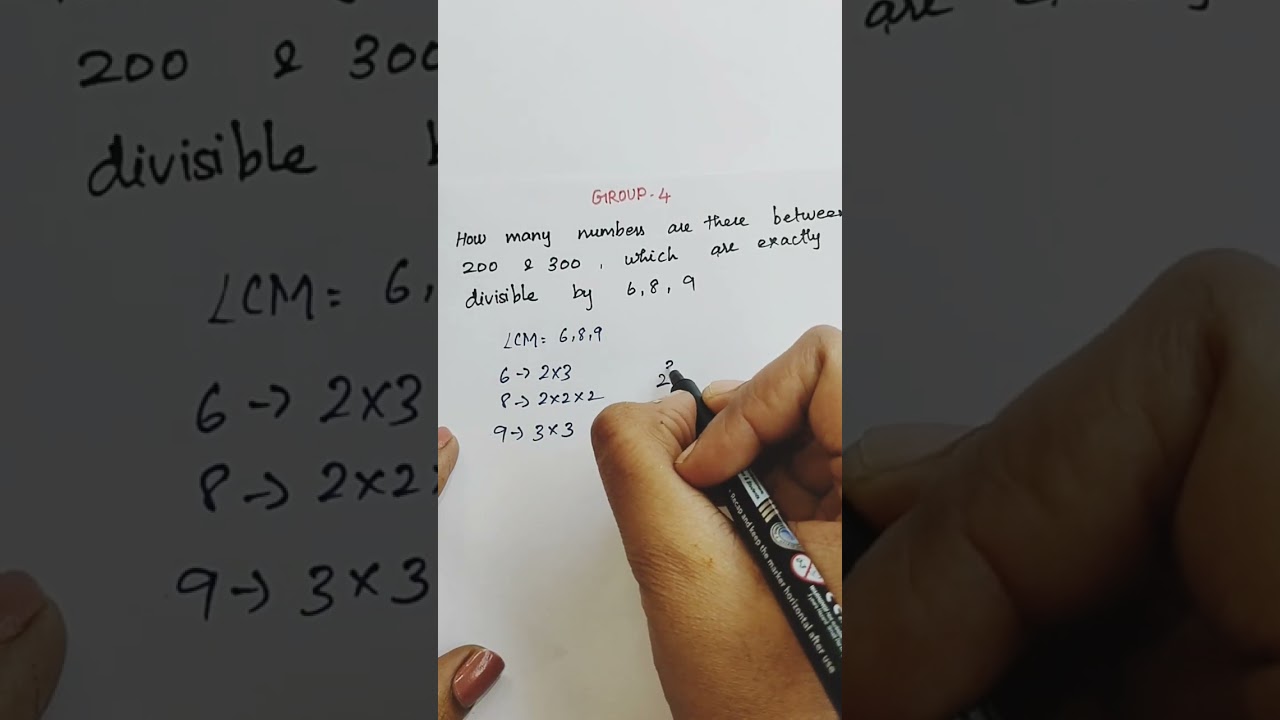 GROUP-4
How many numbers are there between
200 & 300, which are exactly
divisible by 6, 8, 9
LCM = 6, 8, 9
6 → 2×3
8 → 2×2×2
9 → 3×3
2
- Recap and keep the marker horizontal after use
200 & 300
divisible
LCM = 6,
6 → 2×3
8 → 2×2
9 → 3×3
are exactly